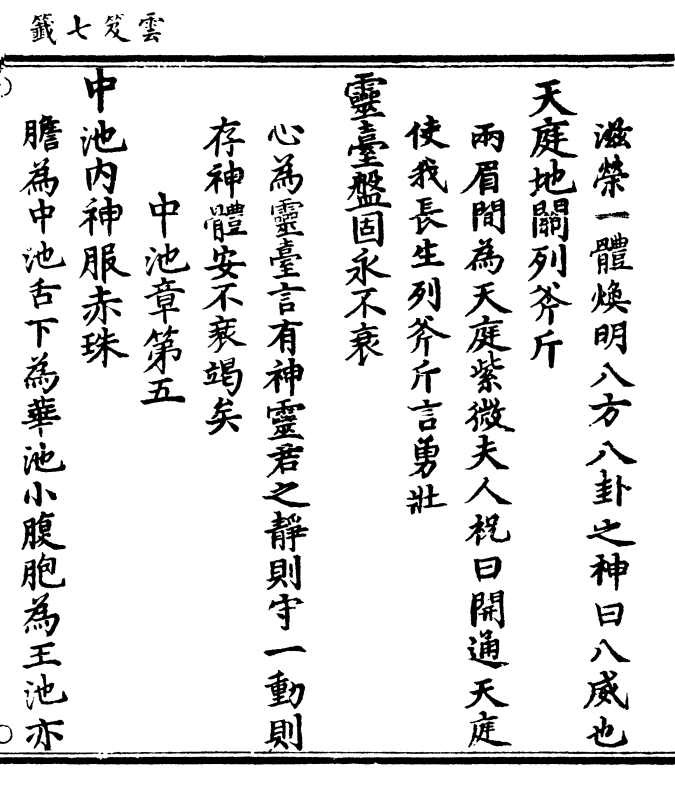 雲笈七籤
滋榮一體煥明八方八卦之神曰八威也
天庭地關列斧斤
兩眉間為天庭紫微夫人祝曰開通天庭
使我長生列斧斤言勇壯
靈臺盤固永不衰
心為靈臺言有神靈君之靜則守一動則
存神體安不衰竭矣
中池章第五
中池内神服赤珠
膽為中池舌下為華池小腹胞為王池亦